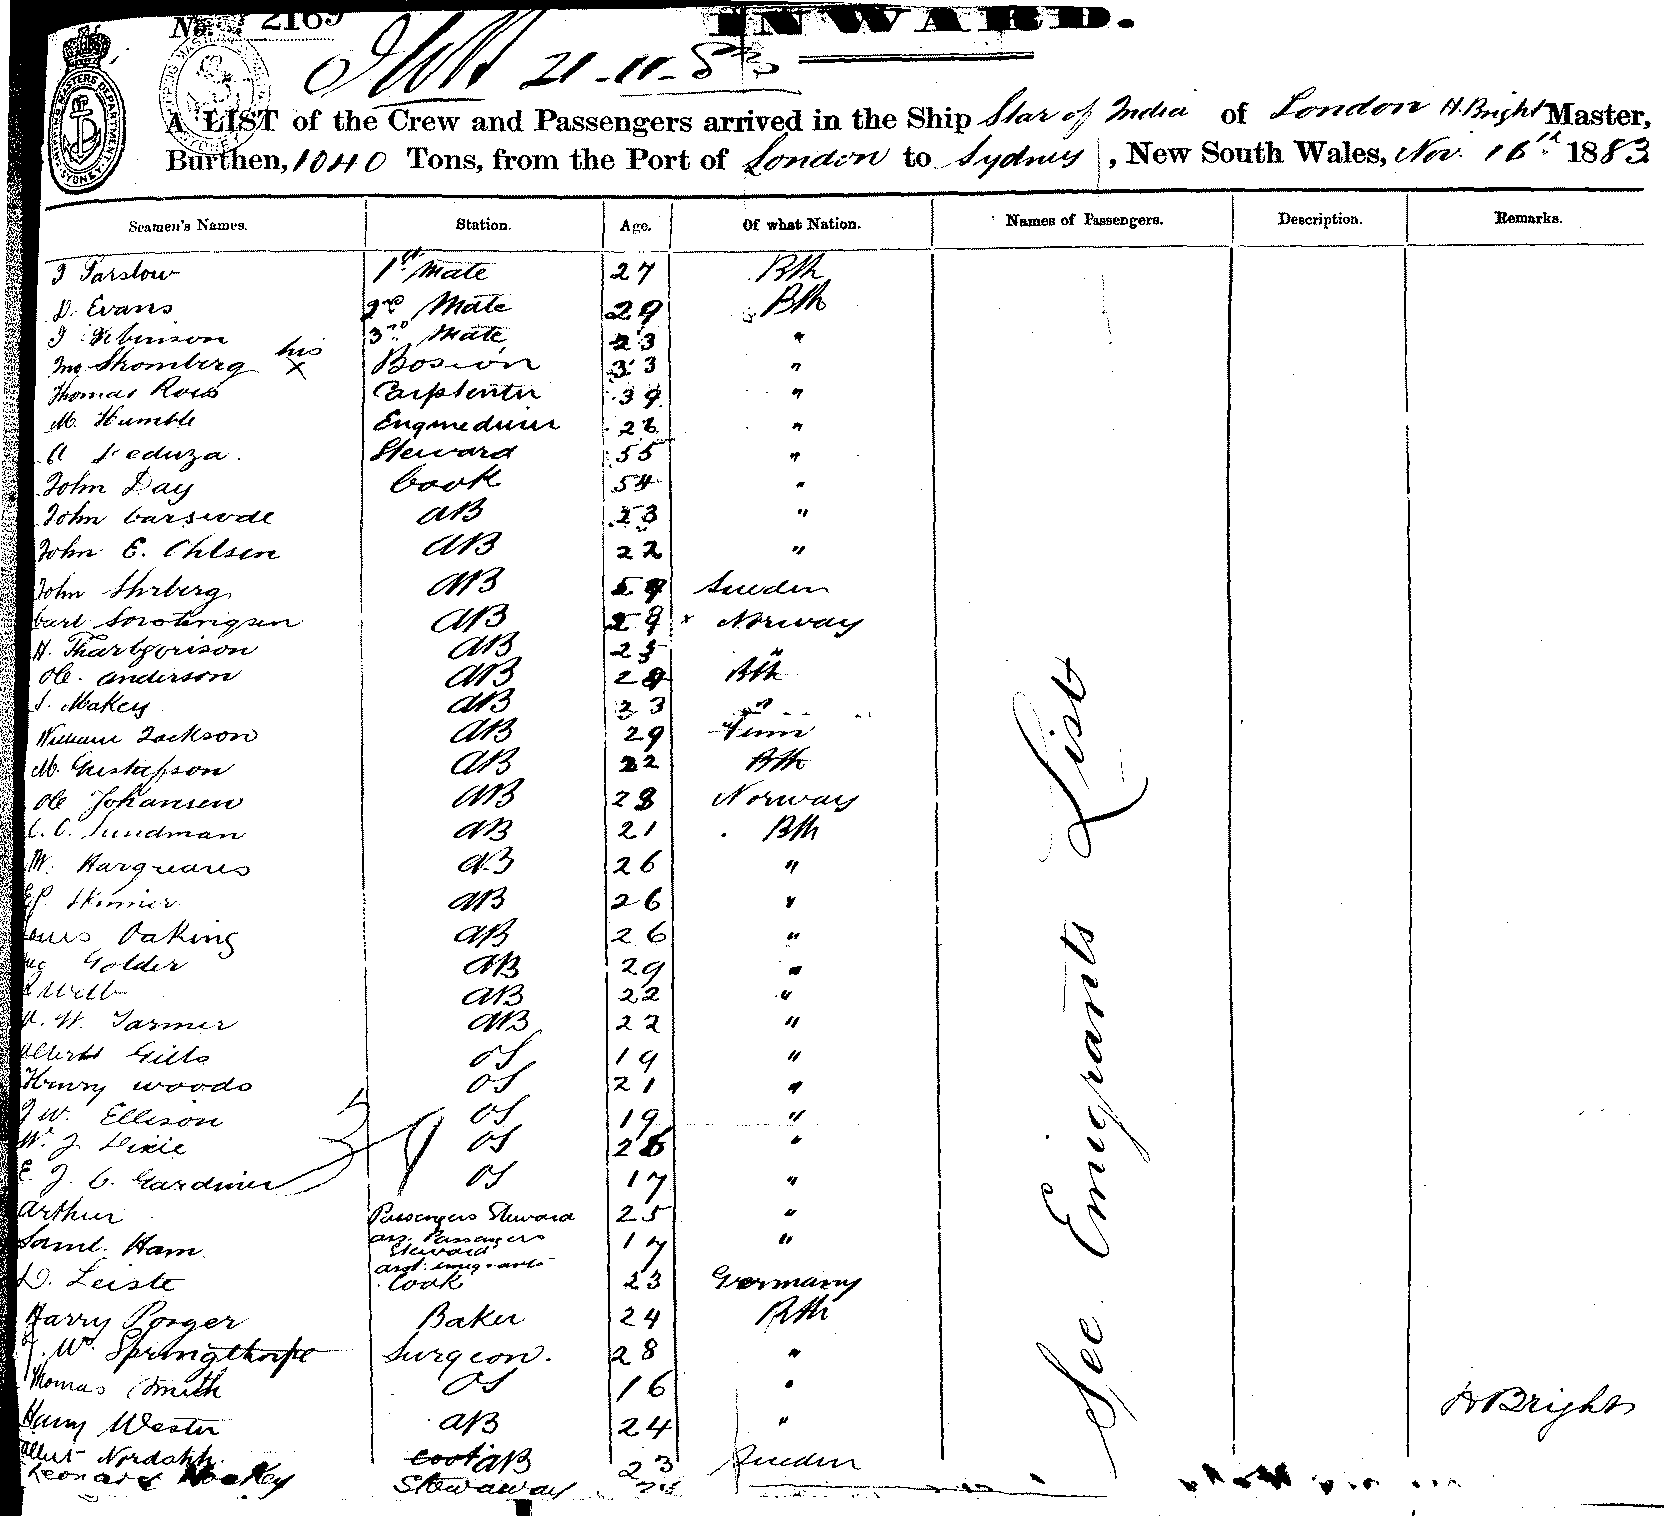 No. 2169 INWARD.
21-11-83
A LIST of the Crew and Passengers arrived in the Ship Star of India of London H. Bright Master,
Burthen, 1040 Tons, from the Port of London to Sydney, New South Wales, Nov. 16th 1883
Seamen's Names. Station. Age. Of what Nation. Names of Passengers. Description. Remarks.
1st Mate 27 Bth
D. Evans 2nd Mate 29 Bth
3rd Mate 23 "
Stromberg his x Bosson 33 "
Thomas Ross Carpenter 39 "
M. Humble 26 "
Steward 55 "
John Day Cook 54 "
John AB 23 "
John E. Ohlsen AB 22 "
John AB Sweden
Carl AB 29 Norway
H. AB 23 "
Ole Anderson AB Bth
Makey AB 33 "
William Jackson AB 29 Finn
M. Gustafson AB 22 Bth
Ole Johansen AB 28 Norway
Sundman AB 21 Bth
W. Hargreaves AB 26 "
Skinner AB 26 "
Oaking AB 26 "
Golder AB 29 "
AB 22 "
W. AB 22 "
Albert Gills OS 19 "
Henry Woods OS 21 "
J W. Ellison OS 19 "
W. J. Dixie OS 26 "
E. J. C. Gardiner OS 17 "
Arthur Passengers Steward 25 "
Saml. Ham ass. Passengers Steward 17 "
D. Leiste asst. emigrants Cook 23 Germany
Harry Porger Baker 24 Bth
J. W. Springthorpe Surgeon. 28 "
Thomas Smith OS 16 "
Harry Wester AB 24 "
Albert AB 23 Sweden
Leonard Stowaway
See Emigrants List
H Bright